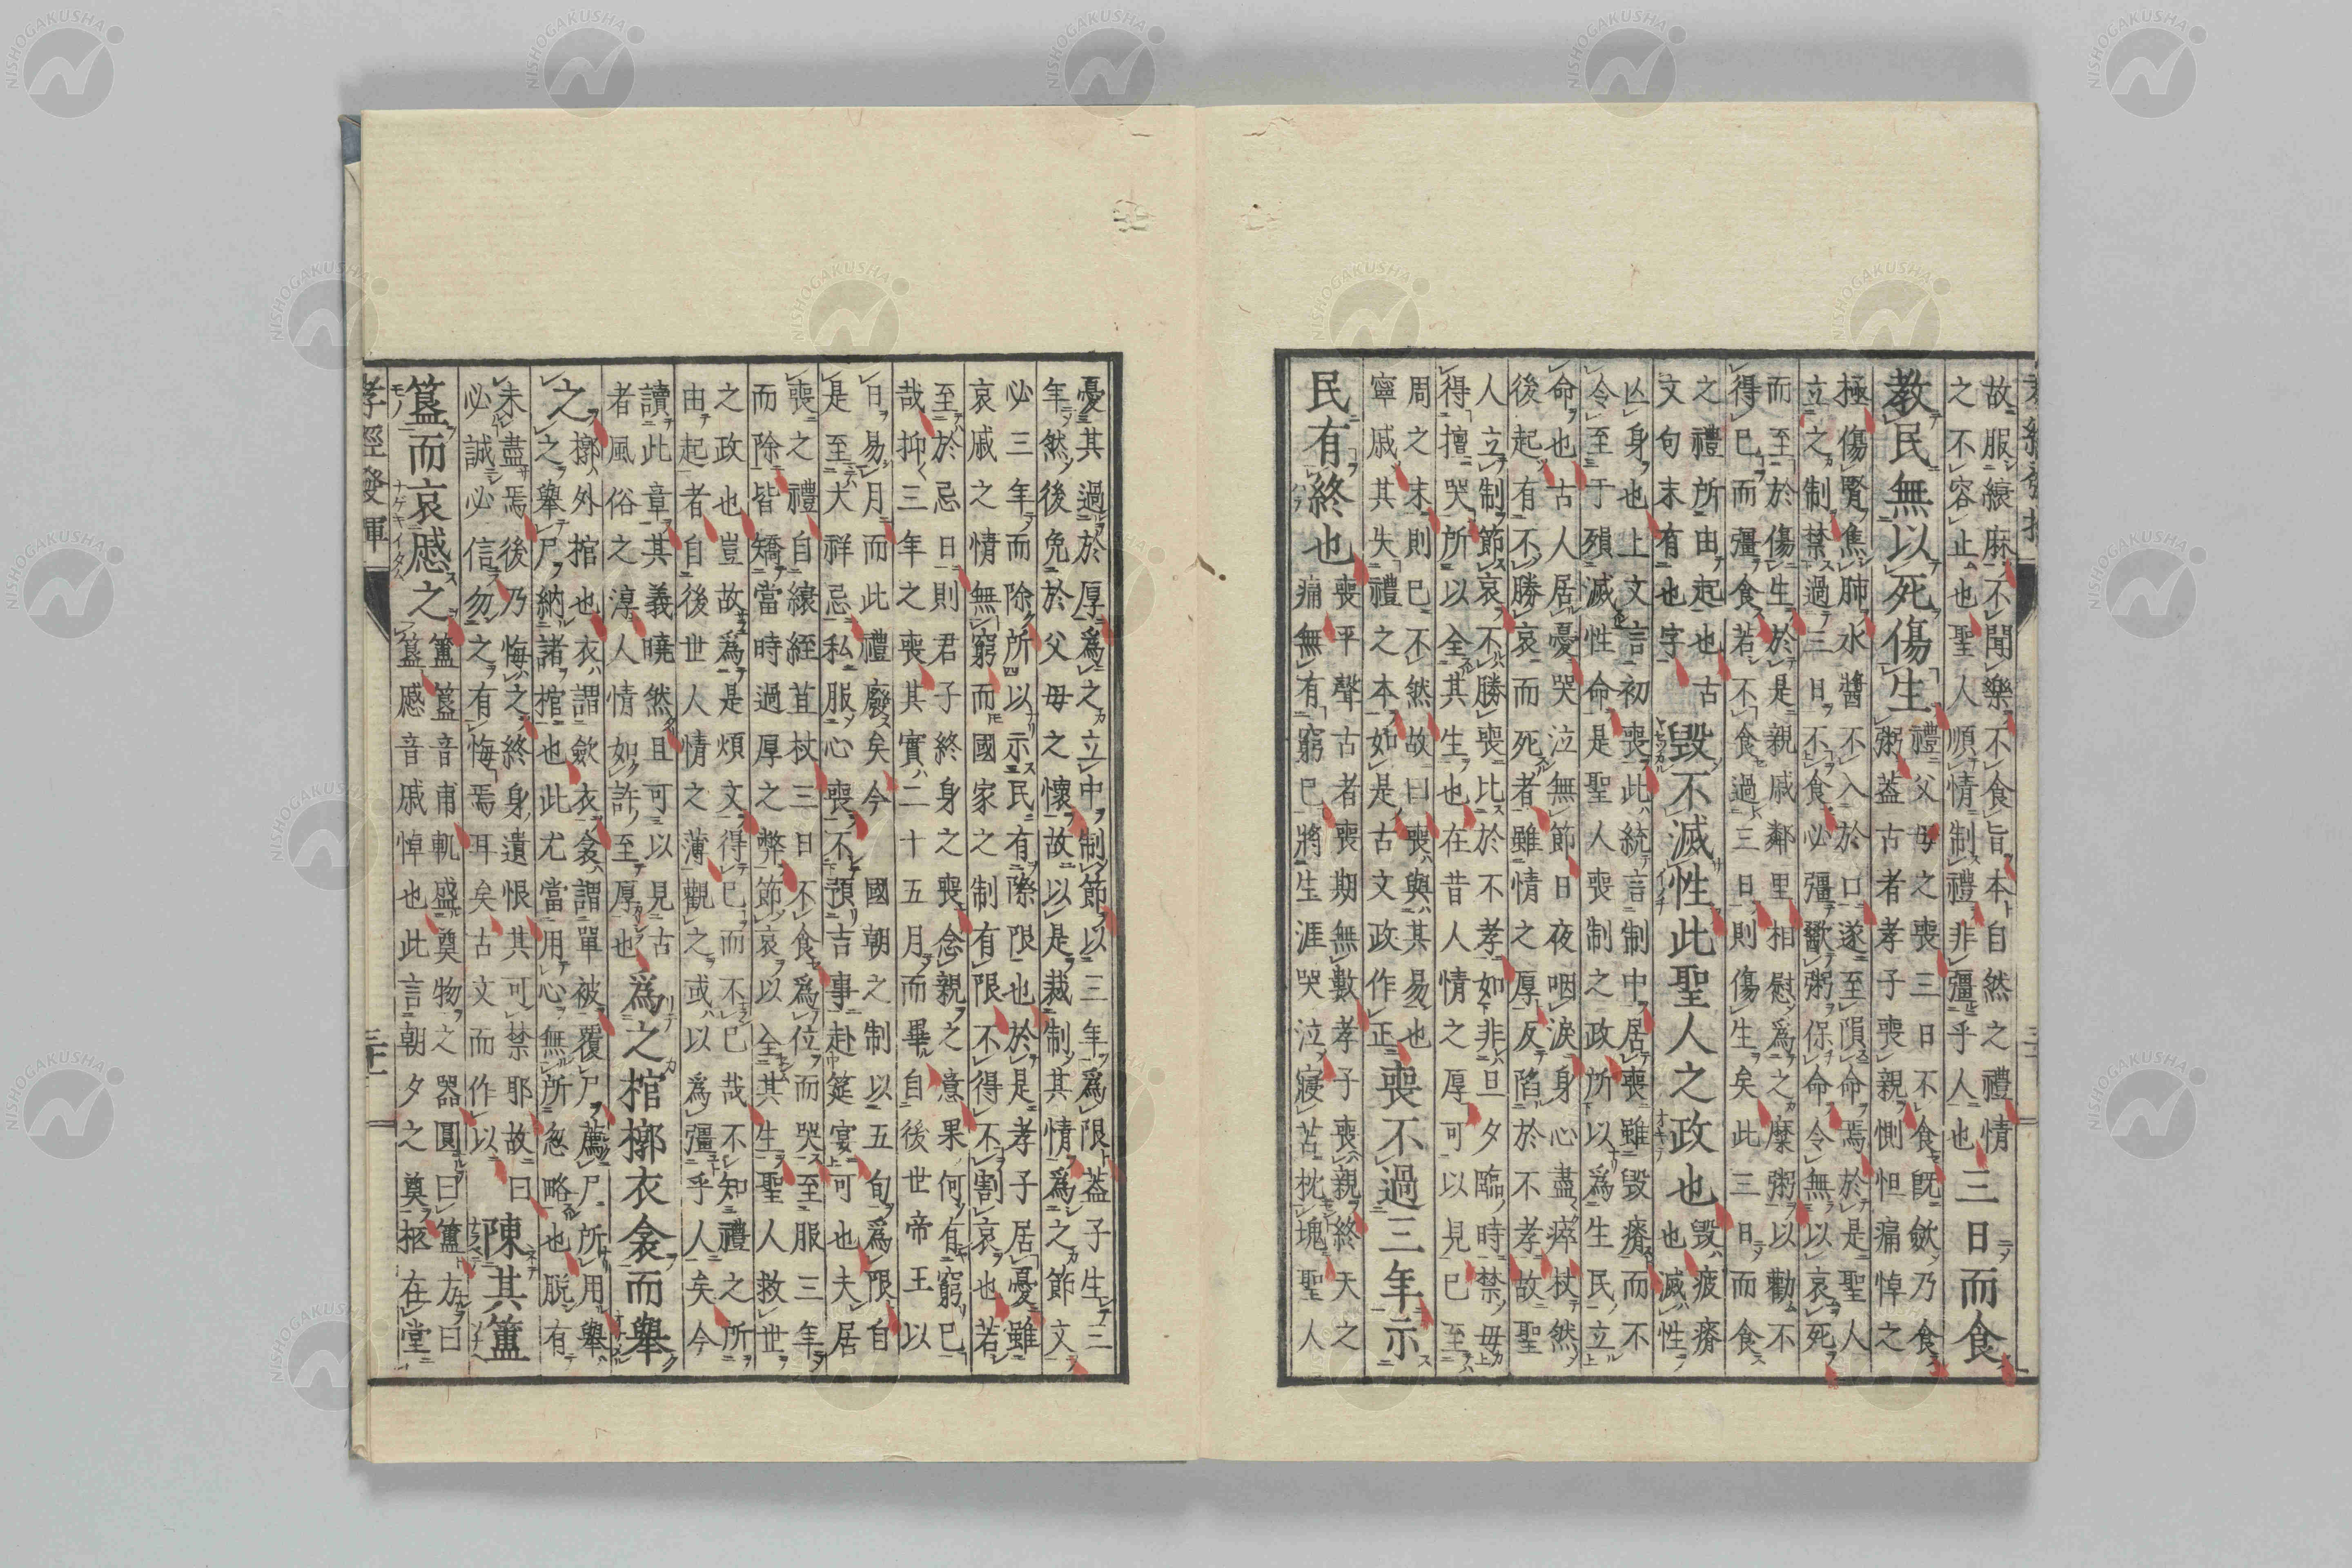 故服縗麻不聞樂不食旨本自然之禮情
之不容止也聖人順情制禮非彊乎人也
三日而食
教民無以死傷生
禮父母之喪三日不食既歛乃食
粥蓋古者孝子喪親惻怛痛悼之
極傷腎焦肺水醬不入於口遂至隕命焉於是聖人
立之制禁過三日不食必彊歠粥保命令無以哀死
而至於傷生於是親戚鄰里相慰爲之糜粥以勸不
得已而彊食若不食過三日則傷生矣此三日而食
之禮所由起也古
文句末有也字
毀不滅性此聖人之政也
毀疲瘠
也滅性
凶身也上文言初喪此統言制中居喪雖毀瘠而不
令至于殞滅性命是聖人喪制之政所以爲生民立
命也古人居憂哭泣無節日夜咽淚身心盡瘁杖然
後起有不勝哀而死者雖情之厚反陷於不孝故聖
人立制節哀不勝喪比於不孝如非旦夕臨時禁毋
得擅哭所以全其生也在昔人情之厚可以見已至
周之末則已不然故曰喪與其易也
寧戚其失禮之本如是古文政作正
喪不過三年示
民有終也
喪平聲古者喪期無數孝子喪親終天之
痛無有窮已將生涯哭泣寢苫枕塊聖人
憂其過於厚爲之立中制節以三年爲限蓋子生三
年然後免於父母之懷故以是裁制其情爲之節文
必三年而除所以示民有際限也於是孝子居憂雖
哀戚之情無窮而國家之制有限不得不割哀也若
至於忌日則君子終身之喪念親之意果何有窮已
哉抑三年之喪其實二十五月而畢自後世帝王以
日易月而此禮廢矣今 國朝之制以五旬爲限自
是至大祥忌私服心喪不預吉事赴筵宴可也夫居
喪之禮自縗絰苴杖三日不食爲位而哭至服三年
而除皆矯當時過厚之弊節哀以全其生聖人救世
之政也豈故爲是煩文得已而不已哉不知禮之所
由起者自後世人情之薄觀之或以爲彊乎人矣今
讀此章其義曉然且可以見古
者風俗之淳人情如許至厚也
爲之棺槨衣衾而舉
之
槨外棺也衣謂歛衣衾謂單被覆尸薦尸所用舉
之舉尸納諸棺也此尤當用心無所怱略也脱有
未盡焉後乃悔之終身遺恨其可禁耶故曰
必誠必信勿之有悔焉耳矣古文而作以
陳其簠
簋而哀慼之
簠簋音甫軌盛奠物之器圓曰簠方曰
簋慼音戚悼也此言朝夕之奠柩在堂
孝經發揮